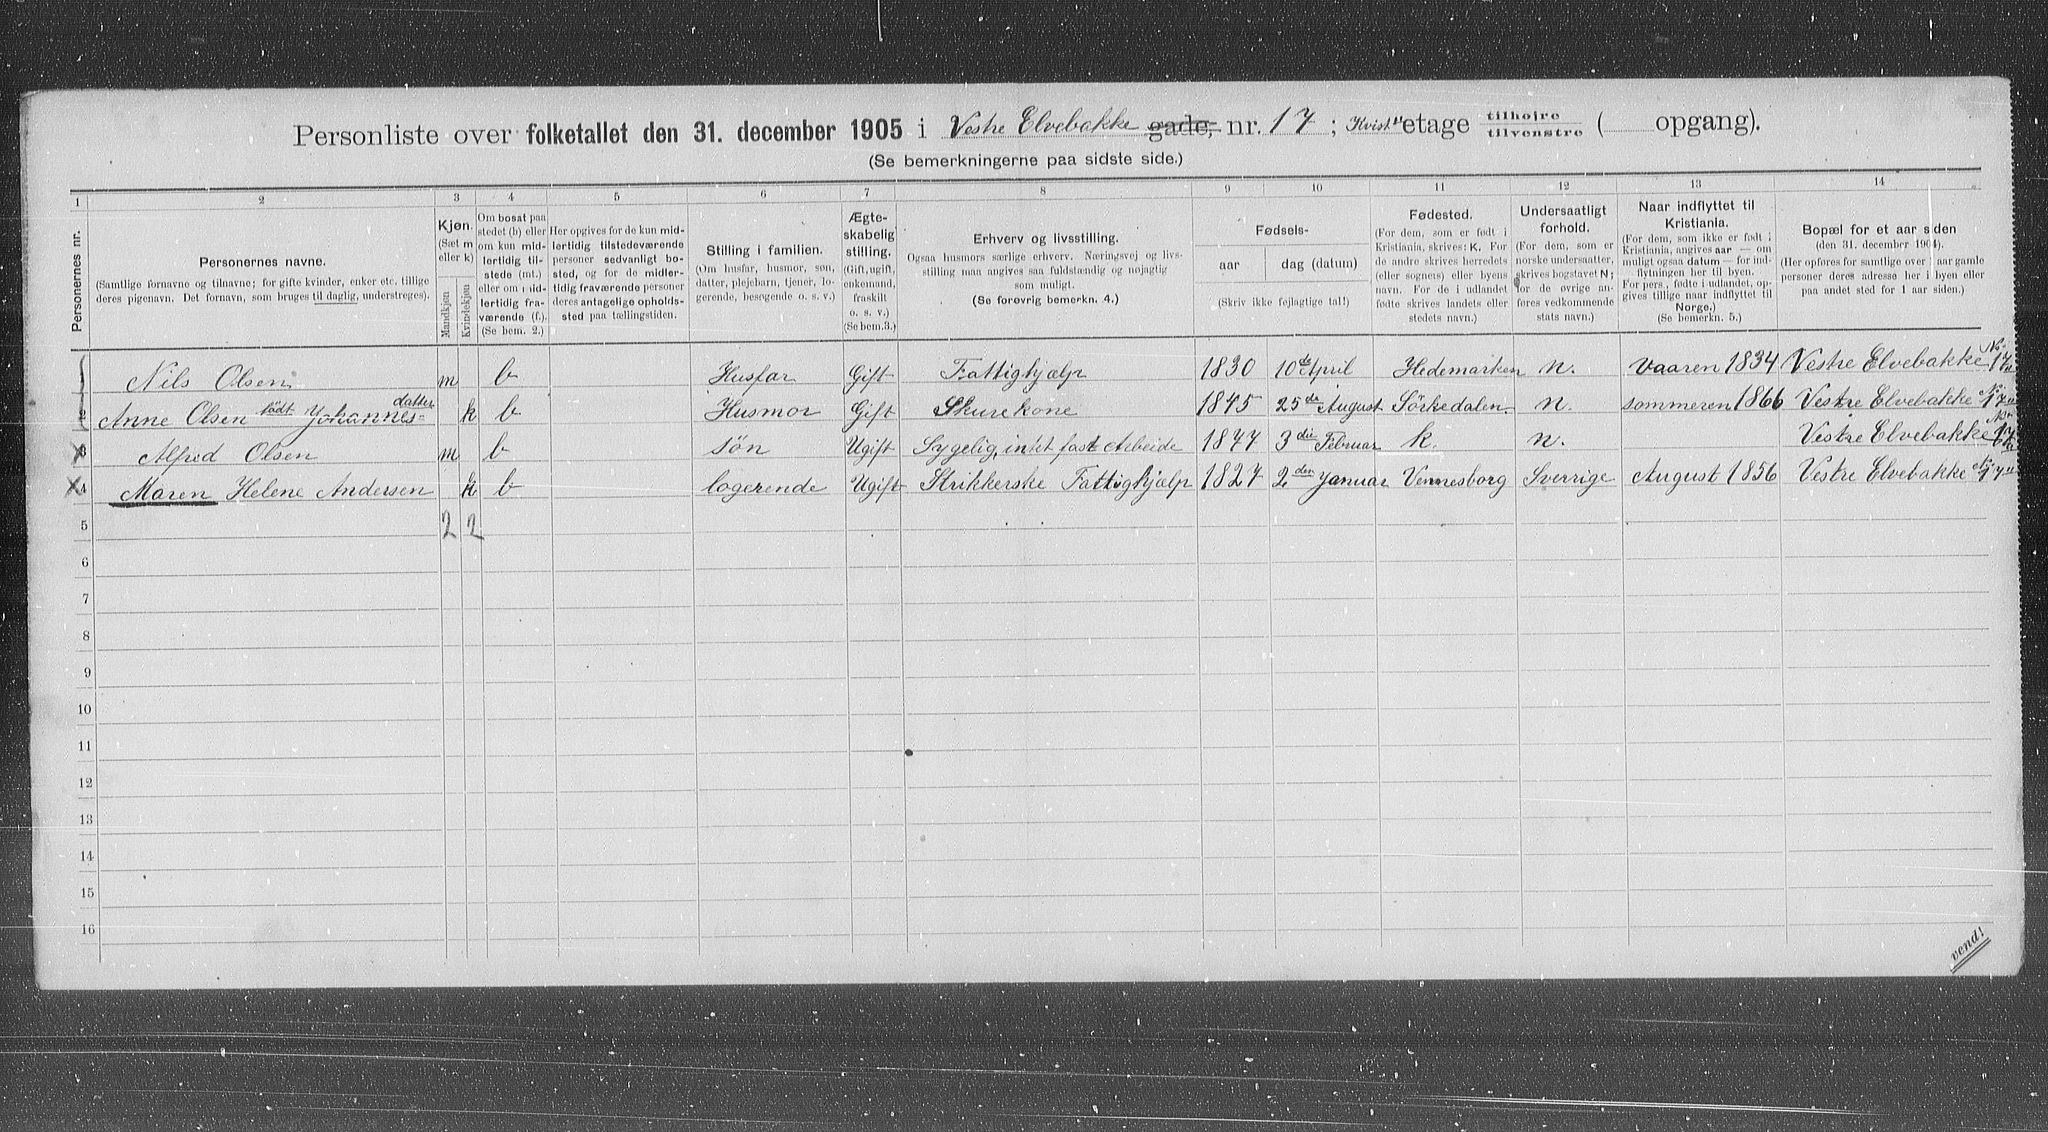 Personliste over folketallet den 31. december 1905 i Vestre Elvebakke gade, nr. 17 ; Kvist etage tilhøjre tilvenstre ( opgang).
(Se bemerkningerne paa sidste side.)
1 2 3 4 5 6 7 8 9 10 11 12 13 14
Personernes nr.
Personernes navne.
(Samtlige fornavne og tilnavne; for gifte kvinder, enker etc. tillige
deres pigenavn. Det fornavn, som bruges til daglig, understreges).
Kjøn.
(Sæt m
eller k)
Mandkjøn
Kvindekjøn
Om bosat paa
stedet (b) eller
om kun mid-
lertidig til-
stede (mt.)
eller om mid-
lertidig fra-
værende (f.).
(Se bem. 2.)
Her opgives for de kun mid-
lertidig tilstedeværende
personer sedvanligt bo-
sted, og for de midler-
tidig fraværende personer
deres antagelige opholds-
sted paa tællingstiden.
Stilling i familien.
(Om husfar, husmor, søn,
datter, plejebarn, tjener, lo-
gerende, besøgende o. s. v.)
Ægte-
skabelig
stilling.
(Gift, ugift,
enkemand,
fraskilt
o. s. v.)
(Se bem.3.)
Erhverv og livsstilling.
Ogsaa husmors særlige erhverv. Næringsvej og livs-
stilling maa angives saa fuldstændig og nøjagtig
som muligt.
(Se forøvrig bemerkn. 4.)
Fødsels-
aar
dag (datum)
(Skriv ikke fejlagtige tal!)
Fødested.
(For dem, som er født i
Kristiania, skrives: K. For
de andre skrives herredets
(eller sognets) eller byens
navn. For de i udlandet
fødte skrives landets eller
stedets navn.)
Undersaatligt
forhold.
(For dem, som er
norske undersaatter,
skrives bogstavet N;
for de øvrige an-
føres vedkommende
stats navn.)
Naar indflyttet til
Kristiania.
(For dem, som ikke er født i
Kristiania, angives aar — om
muligt ogsaa datum — for ind-
flytningen her til byen.
For pers., fødte i udlandet, op-
gives tillige naar indflyttet til
Norge.)
(Se bemerkn. 5.)
Bopæl for et aar siden
(den 31. december 1904).
(Her opføres for samtlige over 1 aar gamle
personer deres adresse her i byen eller
paa andet sted for 1 aar siden.)
1 Nils Olsen m b Husfar Gift Fattighjælp 1830 10de April Hedemarken n. Vaaren 1834 Vestre Elvebakke No. 17
2 Anne Olsen født Johannes=datter k b Husmor Gift Skurekone 1845 25de August Sörkedalen n. sommeren 1866 Vestre Elvebakke No. 17
3 Alfred Olsen m b søn Ugift Sygelig, intet fast Arbeide 1877 3die Februar k. n. Vestre Elvebakke No. 17
4 Maren Helene Andersen k b logerende Ugift Strikkerske Fattighjælp 1827 2den Januar Vennesborg Sverrige August 1856 Vestre Elvebakke No. 17
5 2 2
6
7
8
9
10
11
12
13
14
15
16
vend!